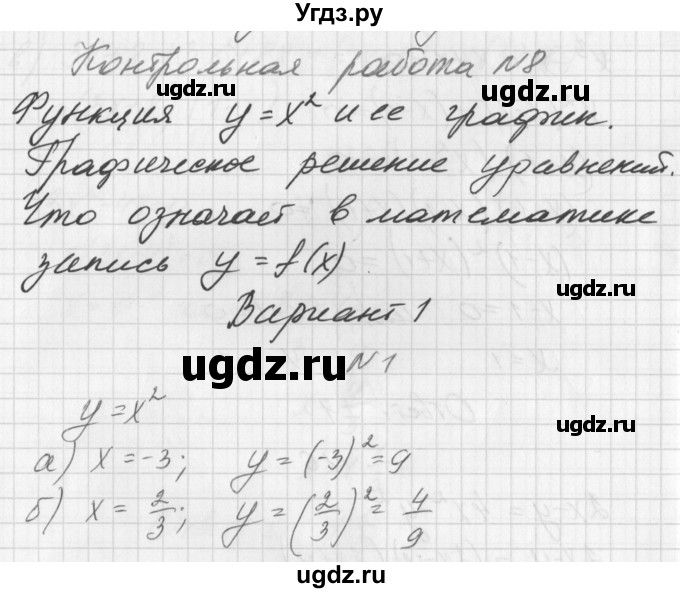 Угдз.ру
Контрольная работа №8
Функция y=x² и её график.
Графическое решение уравнений.
Что означает в математике
запись y=f(x)
Вариант 1
№1
y=x²
а) x=-3; y=(-3)²=9
б) x=2/3; y=(2/3)²=4/9
ugdz.ru
ugdz.ru
ugdz.ru
ugdz.ru
ugdz.ru
ugdz.ru
ugdz.ru
ugdz.ru
ugdz.ru